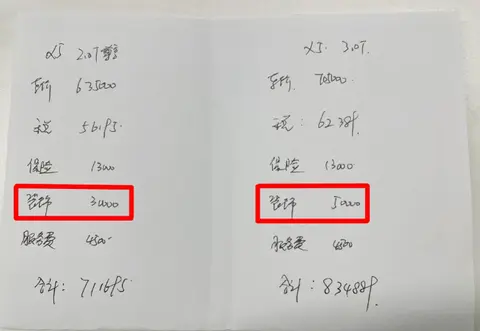 X5 2.0T
车价 635000
税 56195
保险 13000
装饰 3000
服务费 4500
合计: 711695
X5. 3.0T.
车价. 705000.
税: 62389.
保险 13000.
装饰 50000.
服务费 4500
合计: 834889.